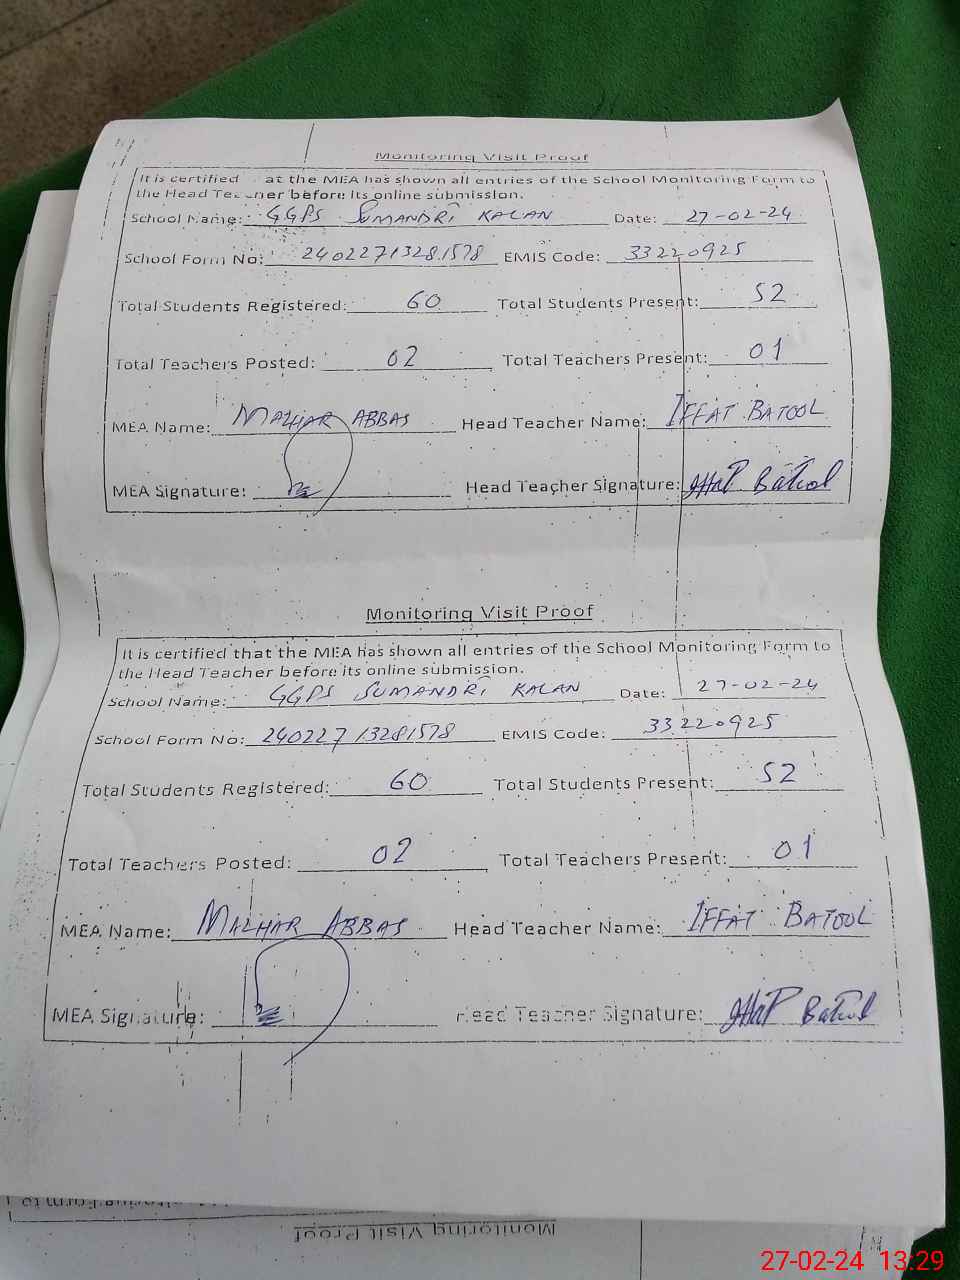 Monitoring Visit Proof
It is certified at the MEA has shown all entries of the School Monitoring Form to
the Head Teacher before its online submission.
School Name: GGPS SUMANDRI KALAN Date: 27-02-24
School Form No: 24022713281578 EMIS Code: 33220925
Total Students Registered: 60 Total Students Present: 52
Total Teachers Posted: 02 Total Teachers Present: 01
MEA Name: MALHAR ABBAS Head Teacher Name: IFFAT BATOOL
MEA Signature: Head Teacher Signature: Iffat Batool
Monitoring Visit Proof
It is certified that the MEA has shown all entries of the School Monitoring Form to
the Head Teacher before its online submission.
School Name: GGPS SUMANDRI KALAN Date: 27-02-24
School Form No: 24022713281578 EMIS Code: 33220925
Total Students Registered: 60 Total Students Present: 52
Total Teachers Posted: 02 Total Teachers Present: 01
MEA Name: MALHAR ABBAS Head Teacher Name: IFFAT BATOOL
MEA Signature: Head Teacher Signature: Iffat Batool
Monitoring Form to
Monitoring Visit Proof
27-02-24 13:29